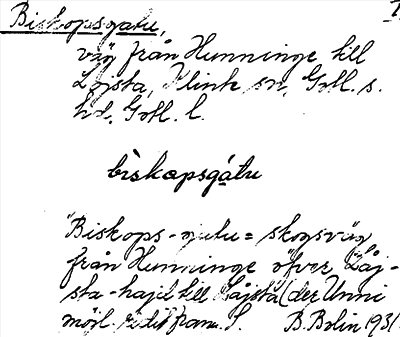 Biskopsgatu,
väg från Hunninge till
Lojsta, Klinte sn, Gotl. s.
hd. Gotl. l.
biskapsgátu
"Biskops-gutu = skogsväg
från Hunninge öfver Låj-
sta-hajd till Låjsta (der Unni
möjl. ridit fram. S. B. Bolin 1931